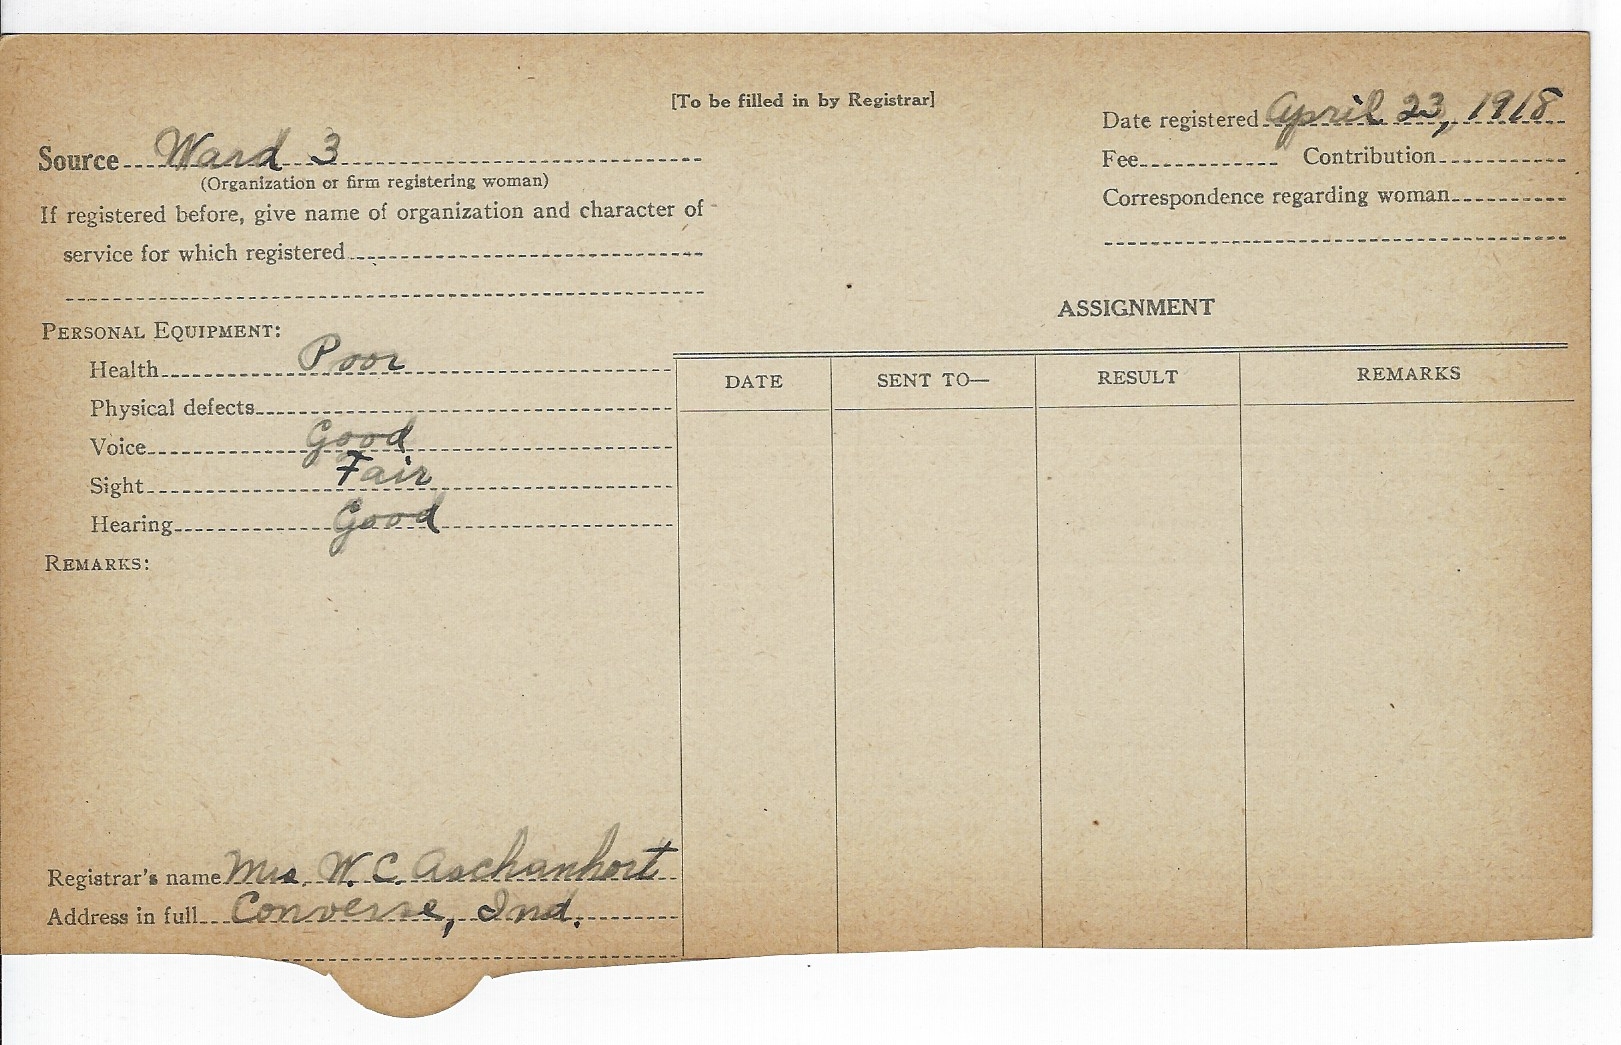 [To be filled in by Registrar]
Date registered April 23, 1918
Source Ward 3
Fee Contribution
(Organization or firm registering woman)
Correspondence regarding woman
If registered before, give name of organization and character of
service for which registered
ASSIGNMENT
PERSONAL EQUIPMENT:
Health Poor
DATE SENT TO— RESULT REMARKS
Physical defects
Voice Good
Sight Fair
Hearing Good
REMARKS:
Registrar's name Mrs. W. C. Aschanhort
Address in full Converse, Ind.